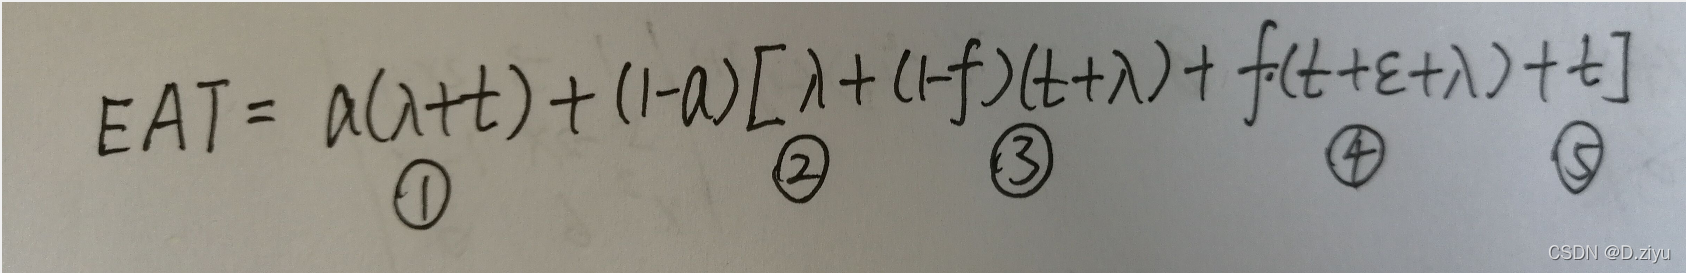 EAT = a(λ+t) + (1-a)[λ + (1-f)(t+λ) + f·(t+ε+λ) + t]
① ② ③ ④ ⑤
CSDN @D.ziyu